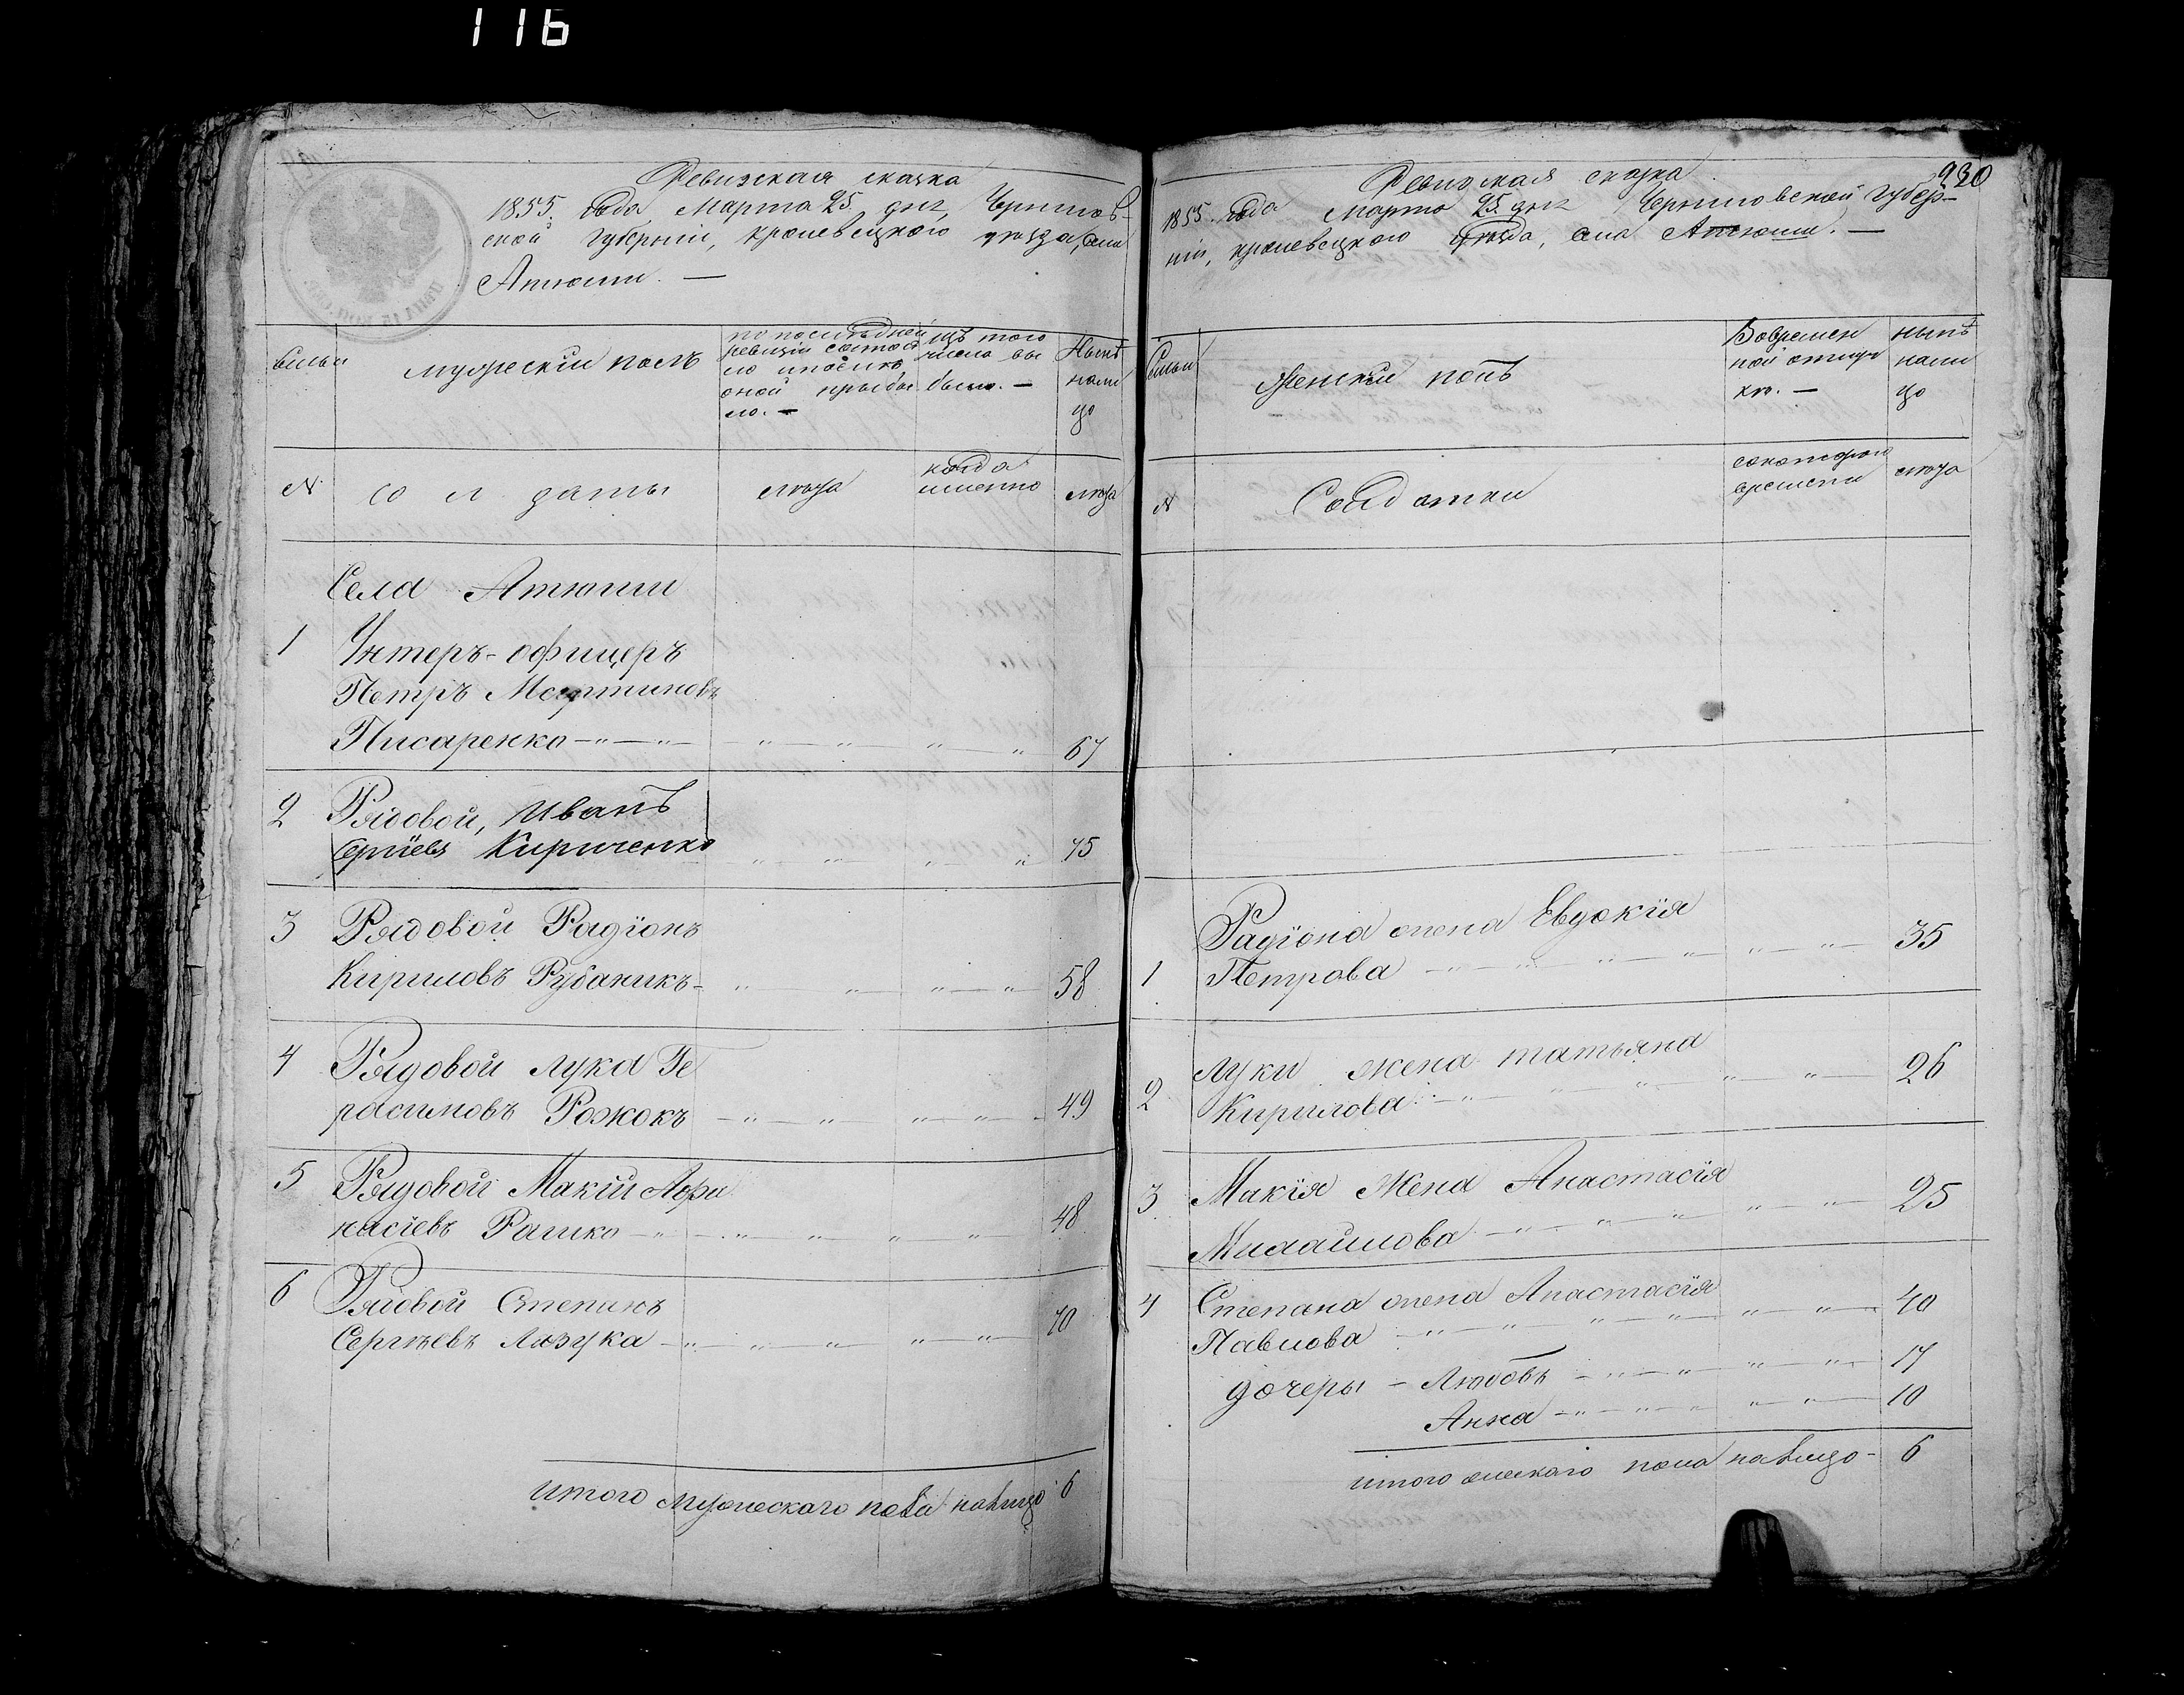 116
Ревизская сказка
1855. года Марта 25 дня, Чернигов-
ской губерніи, кролевецкого уѣзда, села
Атюши. —
Семьи
мужескій полъ
по послѣдней
ревизіи состоя
ло и послѣ
оной прибы
ло. —
изъ того
числа вы
было. —
Нынѣ
нали
цо
№
солдаты
лѣта
когда
именно
лѣта
Села Атюши
1 Унтеръ-офицеръ
Петръ Мартиновъ
Писаренко 67
2 Рядовой, Иванъ
Сергіевъ Кириченко 45
3 Рядовой Радіонъ
Кириловъ Рубаникъ 58
4 Рядовой Лука Ге
расимовъ Рожокъ 49
5 Рядовой Макій Афа
насіевъ Рашко 48
6 Рядовой Степанъ
Сергѣевъ Лязука 40
Итого мужескаго пола налицо 6
930
Ревизская сказка
1855. года Марта 25 дня Черниговской губер-
ніи, кролевецкого уѣзда, села Атюши. —
Семьи
Женскій полъ
Вовремен
ной отлуч
кѣ. —
нынѣ
нали
цо
№
Солдатки
скотораго
времени
лѣта
Радіона жена Евдокія
1 Петрова 35
Луки жена татьяна
2 Кирилова 26
3 Макія Жена Анастасія
Михайлова 25
4 Степана жена Анастасія 40
Павлова
дочеры - Любовь 17
Анна 10
Итого женскаго пола налицо - 6